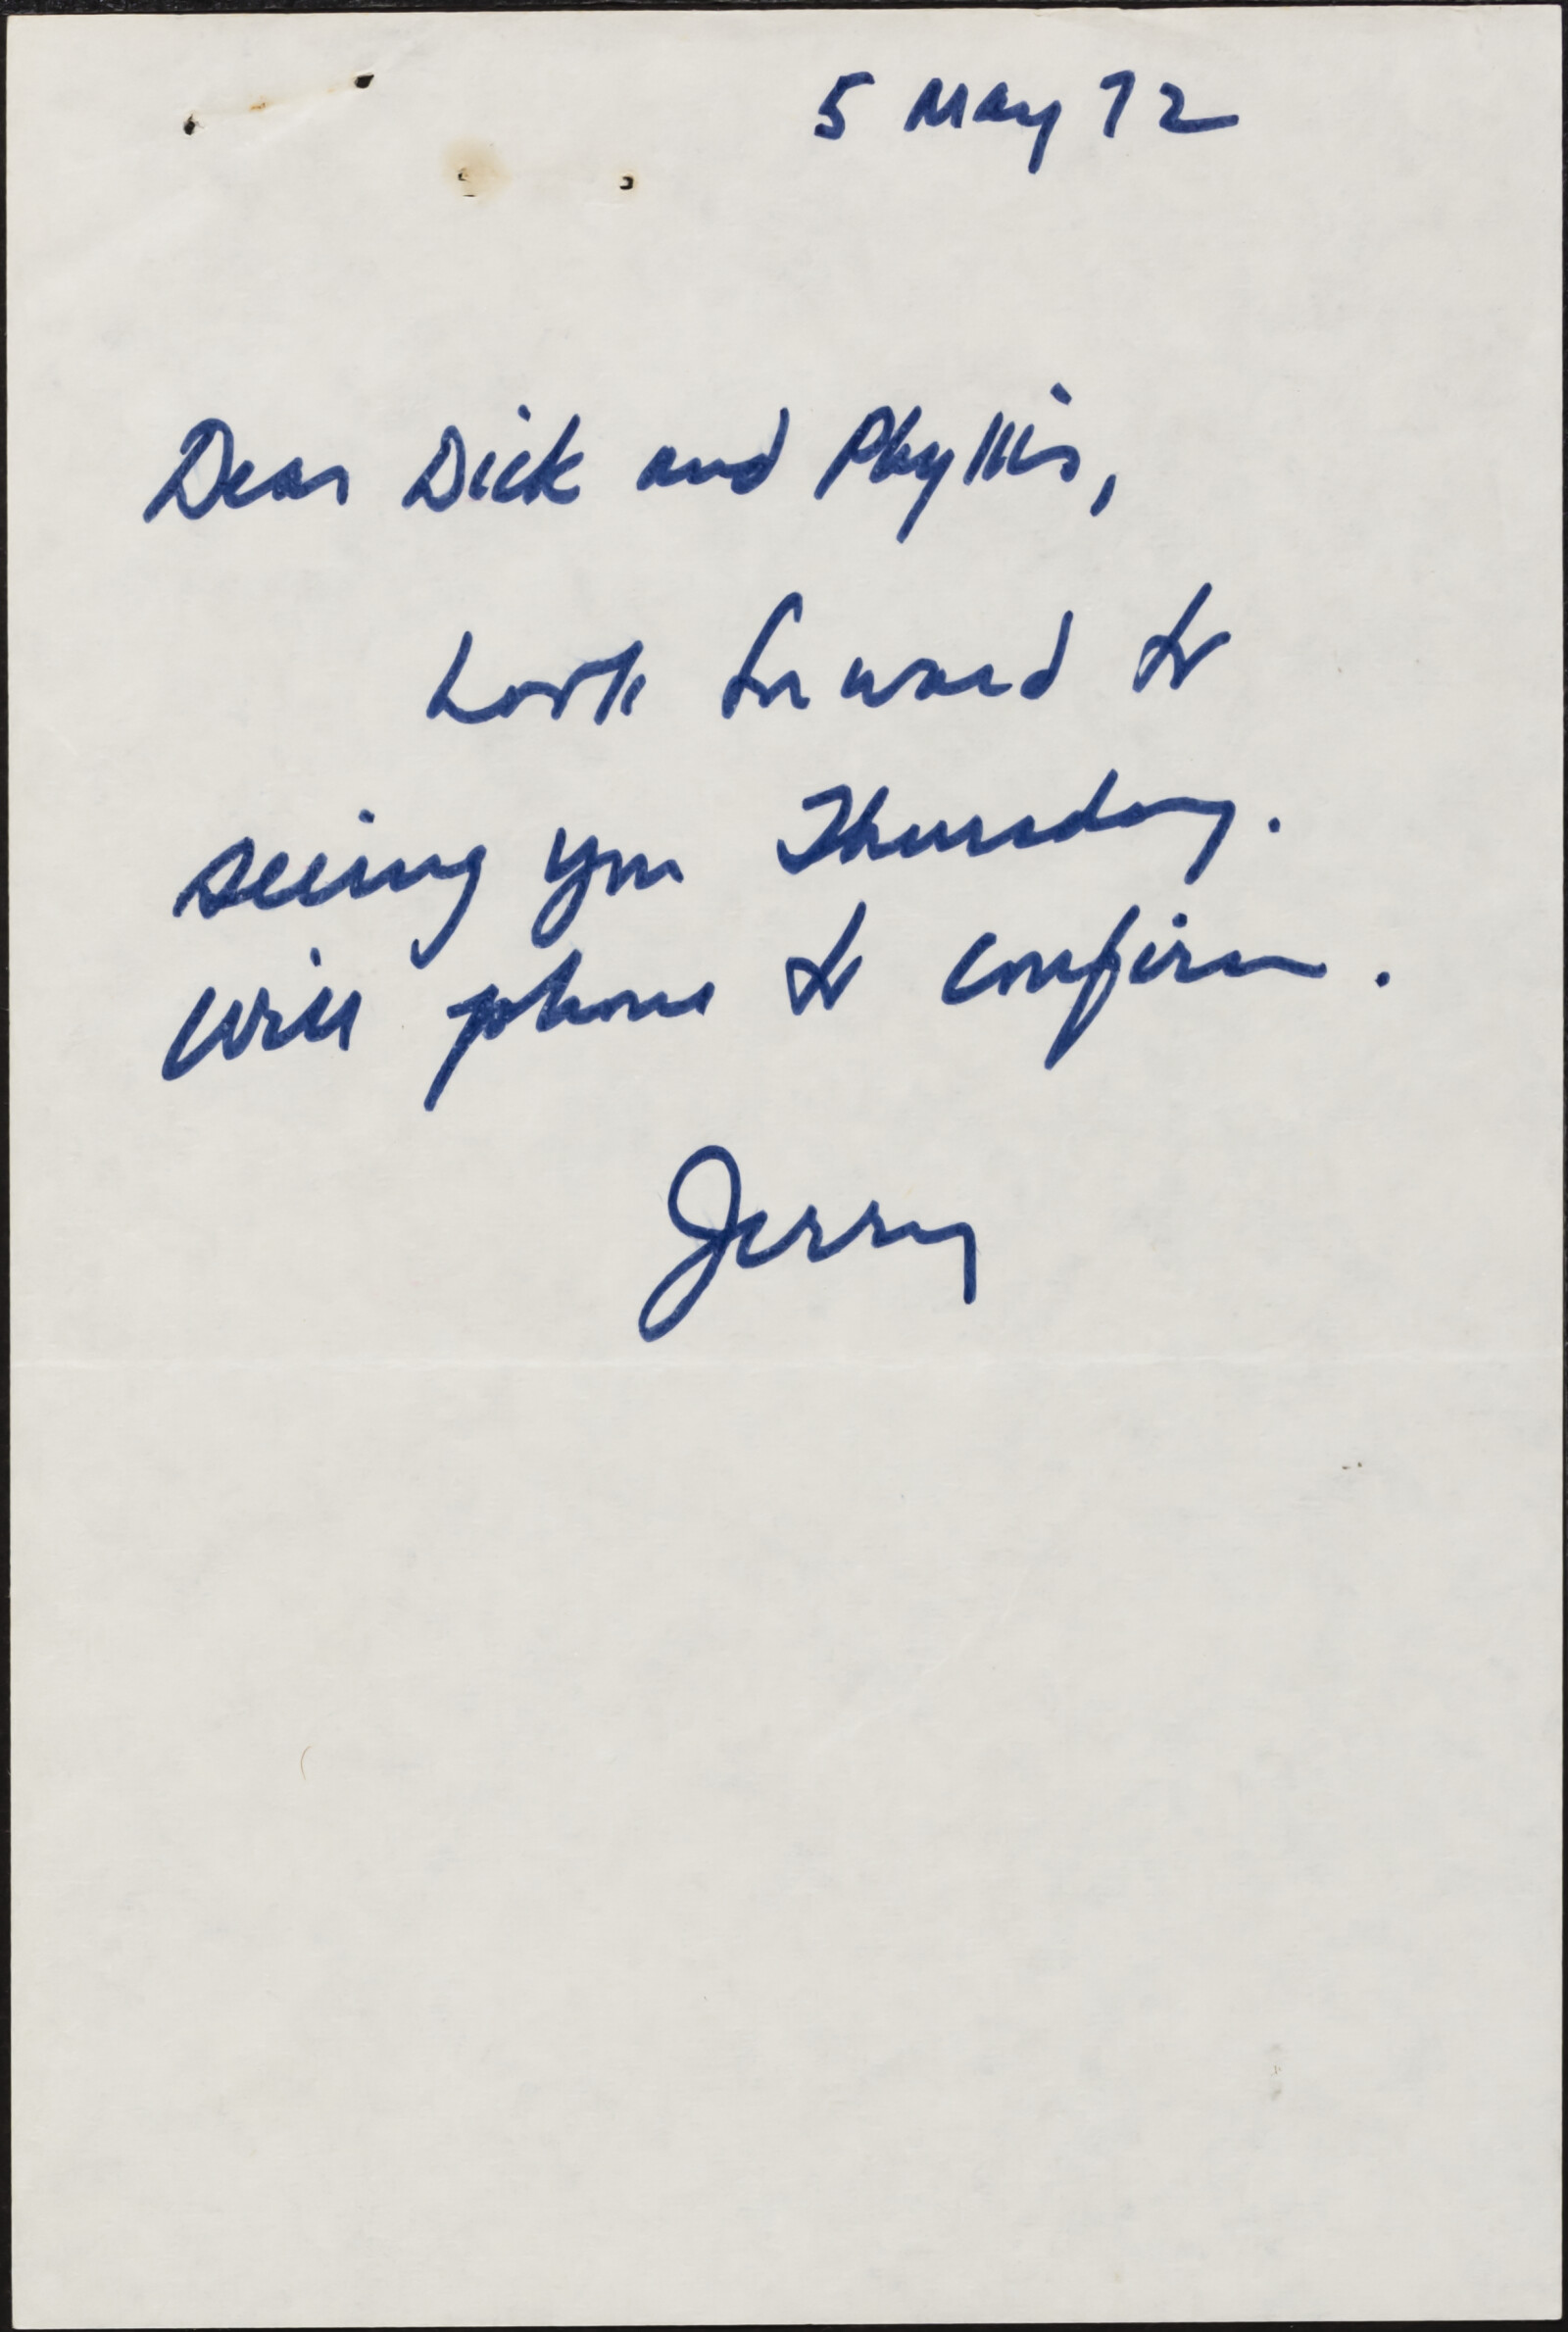 5 May 72
Dear Dick and Phyllis,
Look forward to
seeing you Thursday.
Will phone to confirm.
Jerry